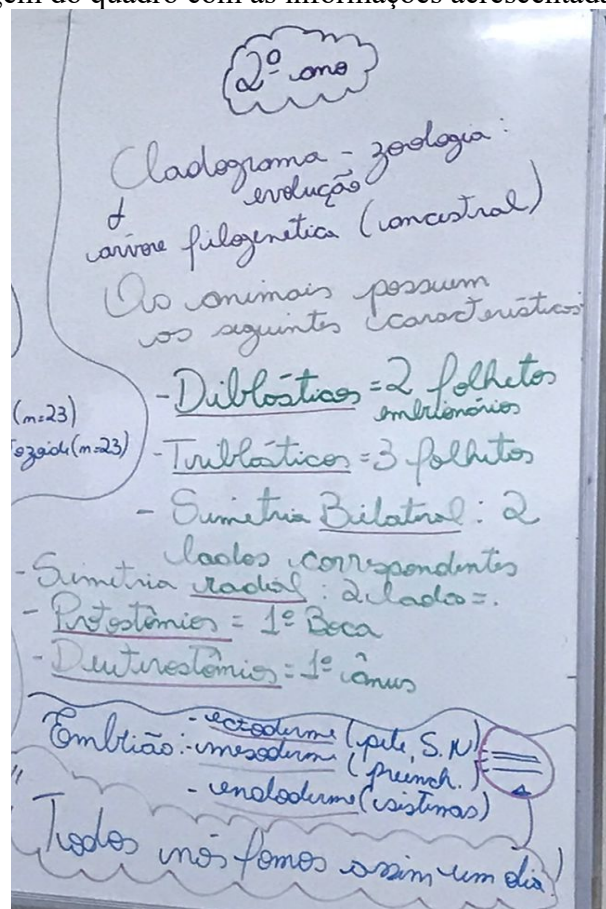 2º ano
Cladograma - zoologia:
evolução
árvore filogenética (ancestral)
Os animais possuem
as seguintes características:
- Diblásticos = 2 folhetos
embrionários
(n=23)
ozoide (n=23)
- Triblásticos = 3 folhetos
- Simetria Bilateral: 2
lados correspondentes
- Simetria radial: 2 lados =.
- Protostômios = 1º Boca
- Deuterostômios = 1º ânus
Embrião: - ectoderme (pele, S.N)
- mesoderm (preench.)
- endoderme (sistemas)
Todos nós fomos assim um dia!